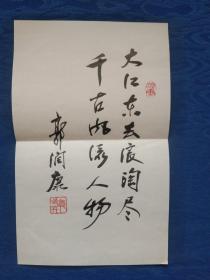 大江东去浪淘尽
千古风流人物
郭润康